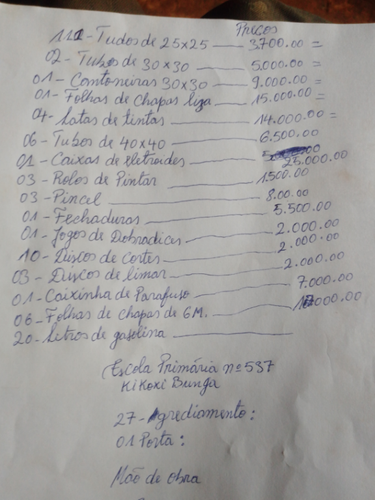 Preços
112 - Tudos de 25x25 3.700.00 =
02 - Tubos de 30x30 5.000.00 =
01 - Contoneiras 30x30 9.000.00 =
01 - Folhas de chapas liza 15.000.00 =
04 - Latas de tintas 14.000.00 =
06 - Tubos de 40x40 6.500.00
02 - Caixas de eletroides 25.000.00
03 - Rolos de Pintar 1.500.00
03 - Pincel 8.00.00
01 - Fechaduras 5.500.00
01 - Jogos de Dobradicas 2.000.00
10 - Discos de cortes 2.000.00
03 - Discos de limar 2.000.00
01 - Caixinha de Parafuso 7.000.00
06 - Folhas de chapas de 6M. 000.00
20 - Litros de gasolina
Escola Primária nº 537
Kikoxi Bunga
27 - Agrediamento:
01 Porta:
Mão de obra